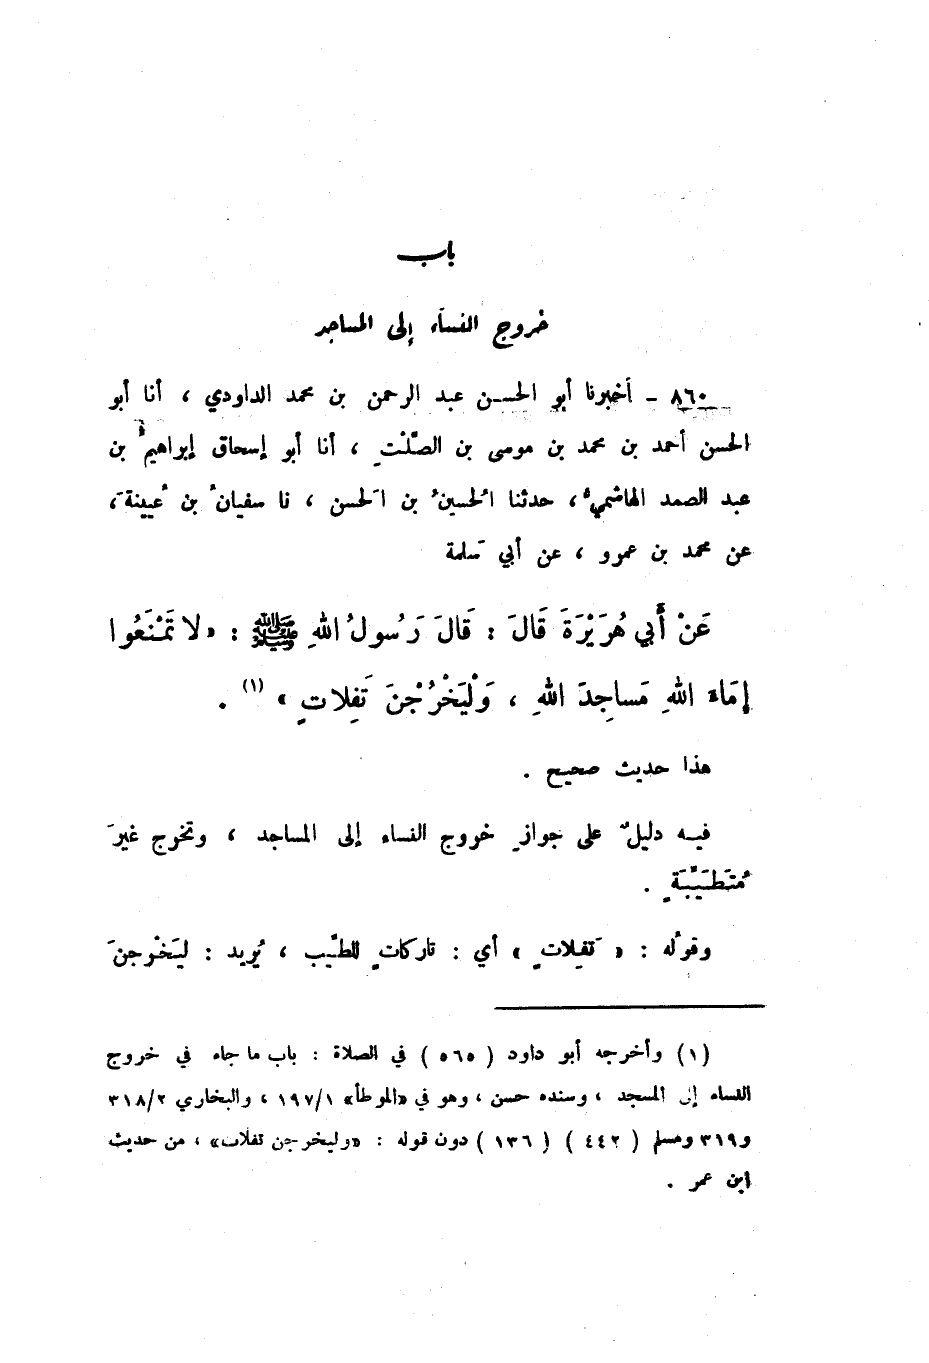 باب
خروج النساء إلى المساجد
٨٦٠ - أخبرنا أبو الحسن عبد الرحمن بن محمد الداودي ، أنا أبو
الحسن أحمد بن محمد بن موسى بن الصَّلْتِ ، أنا أبو إسحاق إبراهيمُ بن
عبد الصمد الهاشميُّ ، حدثنا الحُسينُ بن الحَسن ، نا سفيانُ بن عُيينةَ ،
عن محمد بن عمرو ، عن أبي سَلمة
عَنْ أَبي هُرَيْرَةَ قَالَ : قَالَ رَسُولُ اللهِ ﷺ : «لا تَمْنَعُوا
إمَاءَ اللهِ مَساجِدَ اللهِ ، وَلْيَخْرُجْنَ تَفِلاتٍ » (١) .
هذا حديث صحيح .
فيه دليلٌ على جوازِ خروج النساء إلى المساجد ، وتخرج غيرَ
مُتَطَيِّبَةٍ .
وقولُه : « تَفِلاتٍ » أي : تاركاتٍ للطِّيب ، يُريد : ليَخْرجنَ
(١) وأخرجه أبو داود ( ٥٦٥ ) في الصلاة : باب ما جاء في خروج
النساء إلى المسجد ، وسنده حسن ، وهو في «الموطأ» ١٩٧/١ ، والبخاري ٣١٨/٢
و٣١٩ ومسلم ( ٤٤٢ ) ( ١٣٦ ) دون قوله : «وليخرجن تفلات» ، من حديث
ابن عمر .